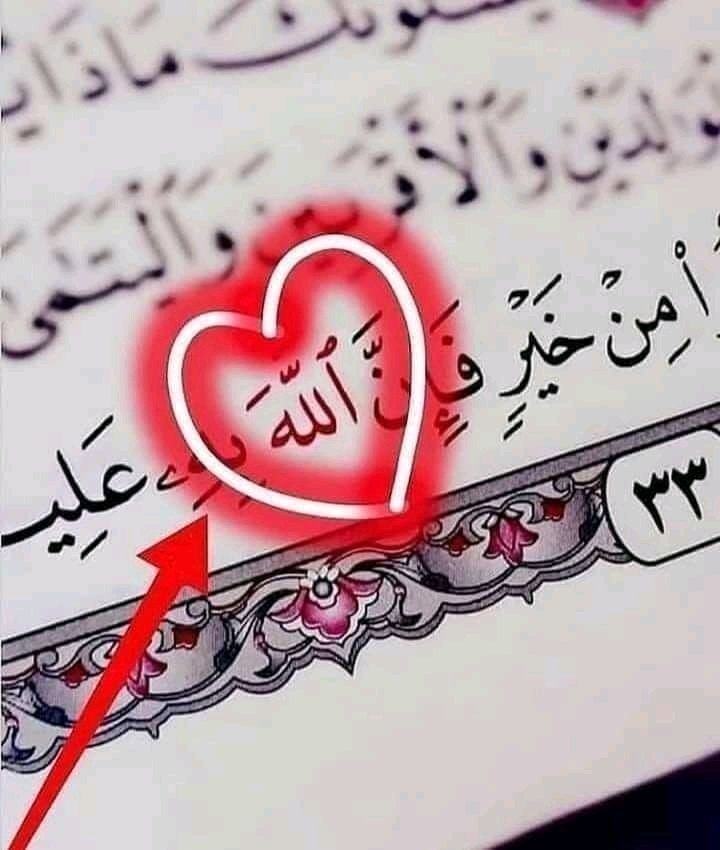 يَسْـَٔلُونَكَ مَاذَا يُ
لْوَٰلِدَيْنِ وَٱلْأَقْرَبِينَ وَٱلْيَتَـٰمَىٰ
وا۟ مِنْ خَيْرٍ فَإِنَّ ٱللَّهَ بِهِۦ عَلِيـ
٣٣